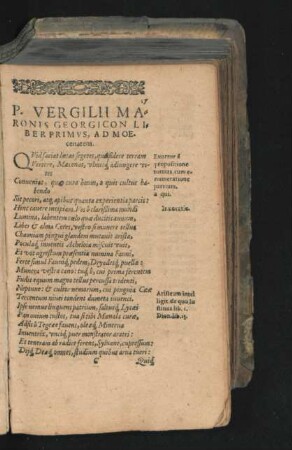 P. VERGILII MA
RONIS GEORGICON LI
BER PRIMVS, AD MOE
cenatem.
QVid faciat lætas segetes, quo sidere terram
Vertere, Mæcenas, vlmisq́; adiungere vites
Conueniat, quæ cura boum, quis cultus habendo
Sit pecori, atq; apibus quanta experientia parcis:
Hinc canere incipiam. Vos ô clarissima mundi
Lumina, labentem cœlo quæ ducitis annum,
Liber & alma Ceres, vestro si munere tellus
Chaoniam pingui glandem mutauit arista,
Poculaq́; inuentis Acheloia miscuit vuis,
Et vos agrestum præsentia numina Fauni,
Ferte simul Fauniq́; pedem, Dryadesq́; puellæ:
Munera vestra cano: tuq́; ô, cui prima frementem
Fudit equum magno tellus percussa tridenti,
Neptune: & cultor nemorum, cui pinguia Cææ
Tercentum niuei tondent dumeta iuuenci.
Ipse nemus linquens patrium, saltusq́; Lycæi
Pan ouium custos, tua si tibi Mænala curæ,
Adsis ô Tegeæe fauens, oleæq́; Minerua
Inuentrix, vnciq́; puer monstrator aratri:
Et teneram ab radice ferens, Syluane, cupressum:
Dijq́; Deæq́; omnes, studium quibus arua tueri:
C
Quiq́;
propositione
enumeratione
partium,
à qui.
Inuocatio.
Aristæum intel
ligit, de quo Iu
stinus lib.